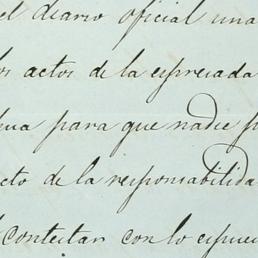 el diario oficial una
os actos de la espresada
ua para que nadie p
cto de la responsabilida
contestar con lo espue